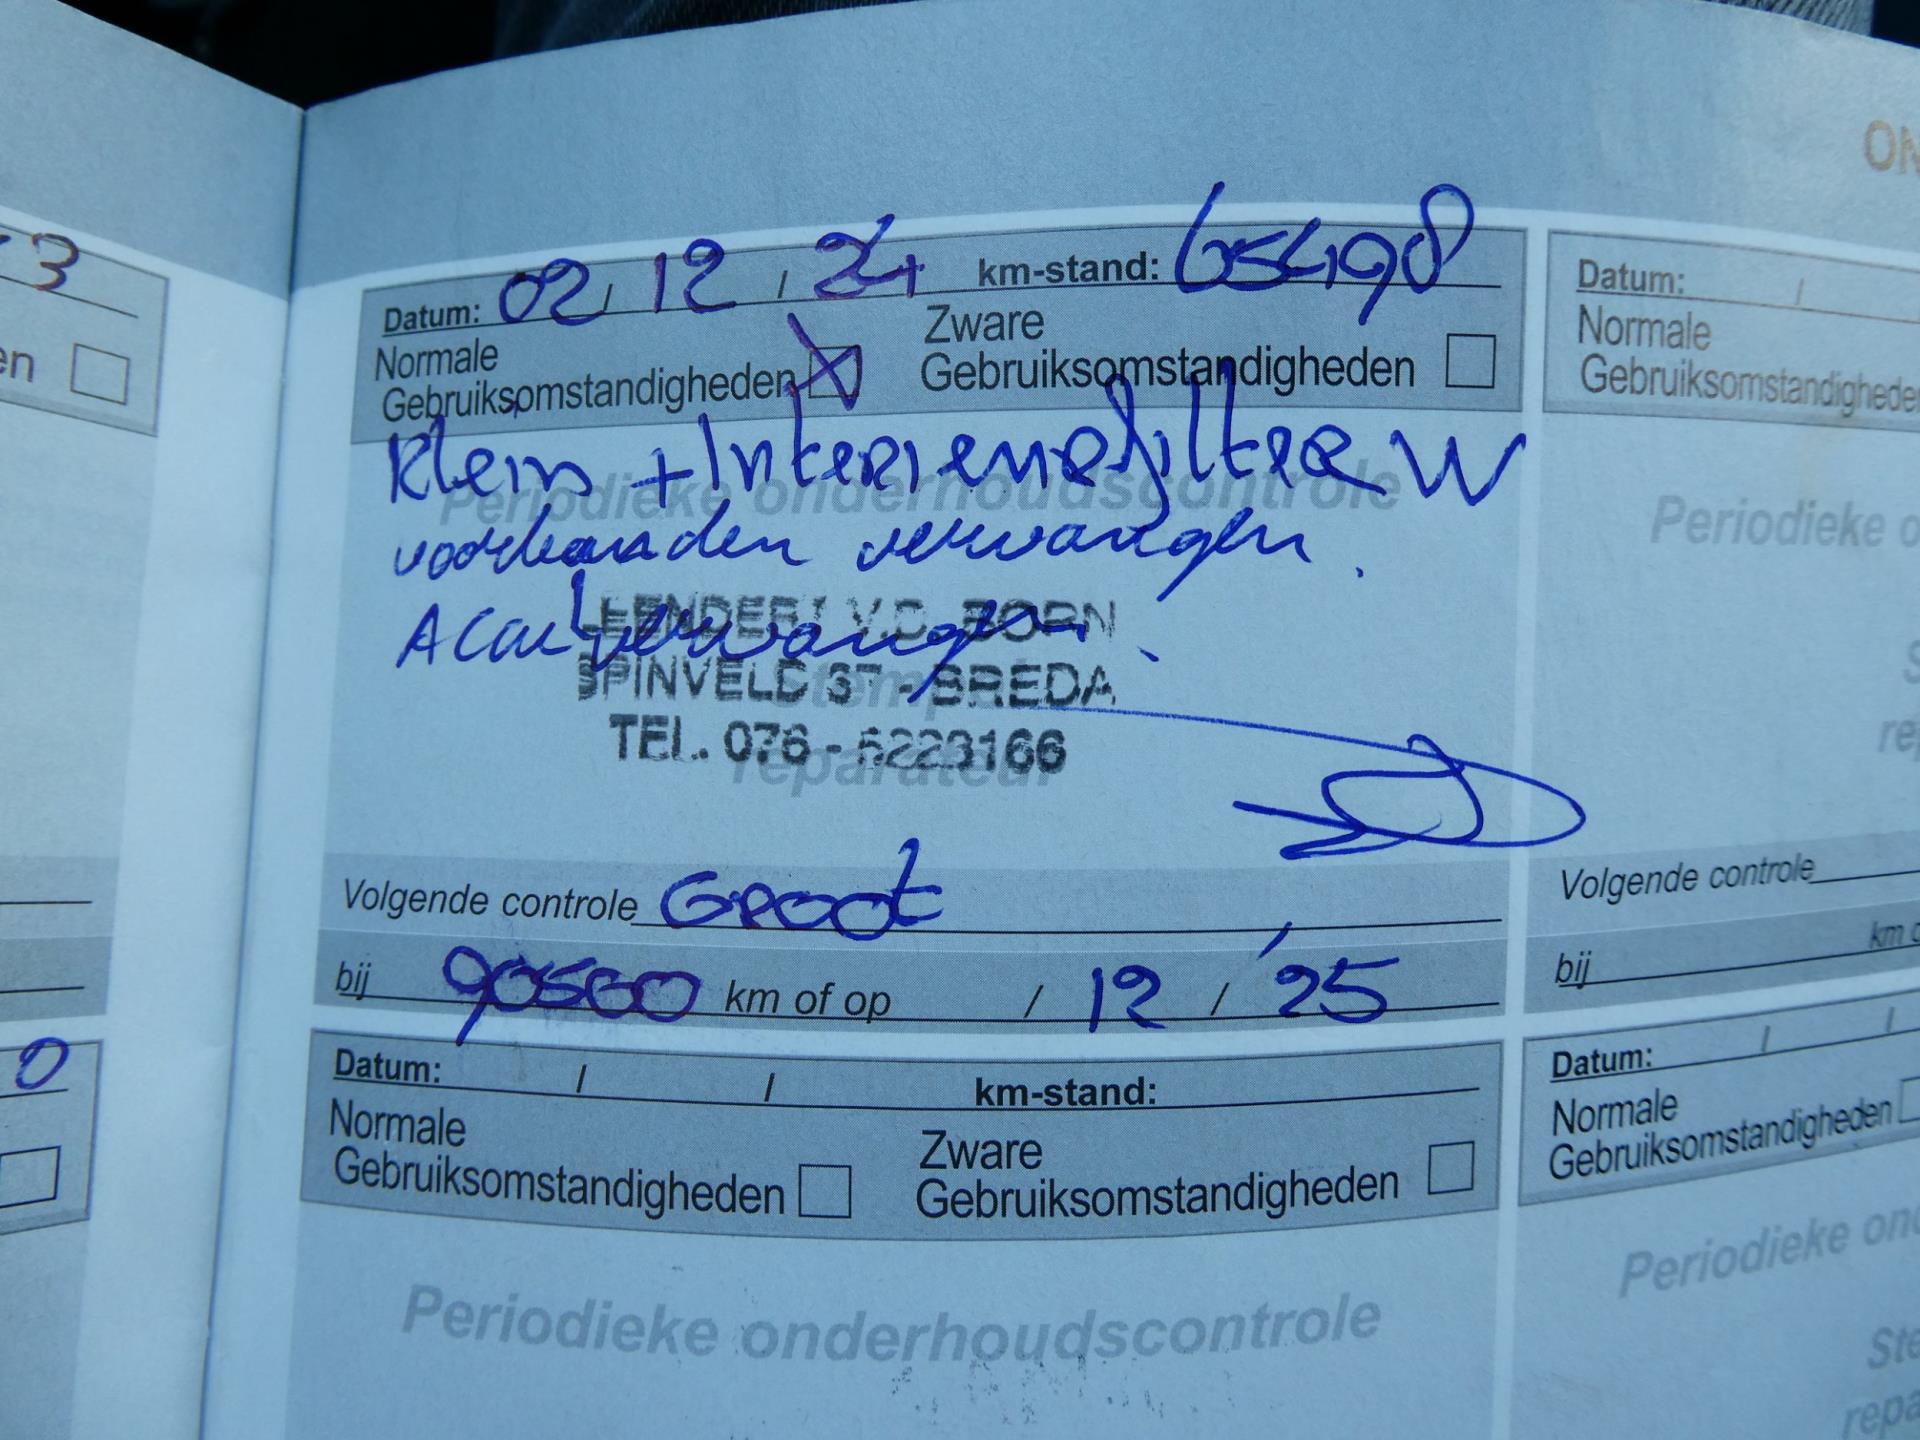 ON
3
Datum: 02/12/24 km-stand: 65498
Normale
Gebruiksomstandigheden
Zware
Gebruiksomstandigheden
Klein + Interieurfilter W
voorbanden vervangen.
Accu vervangen.
Periodieke onderhoudscontrole
LEENDERT V.D. BORN
SPINVELD 37 - BREDA
TEL. 076 - 5223166
Stempel
reparateur
Volgende controle Groot
bij 90500 km of op / 12 / '25
Datum: / / km-stand:
Normale
Gebruiksomstandigheden
Zware
Gebruiksomstandigheden
Periodieke onderhoudscontrole
en
0
Datum: /
Normale
Gebruiksomstandighede
Periodieke o
S
rep
Volgende controle
km o
bij
Datum: / /
Normale
Gebruiksomstandigheden
Periodieke on
Ste
repa